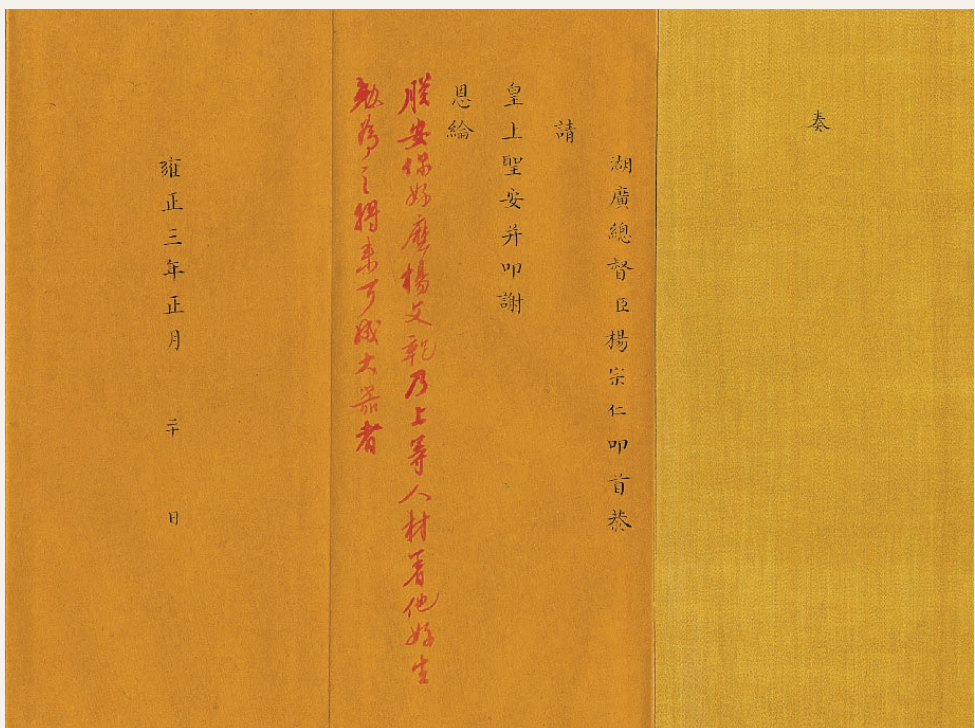 奏
湖廣總督臣楊宗仁叩首恭
請
皇上聖安并叩謝
恩綸
朕安你好麽楊文乾乃上等人材着他好生
勉為之將來可成大器者
雍正三年正月 二十 日